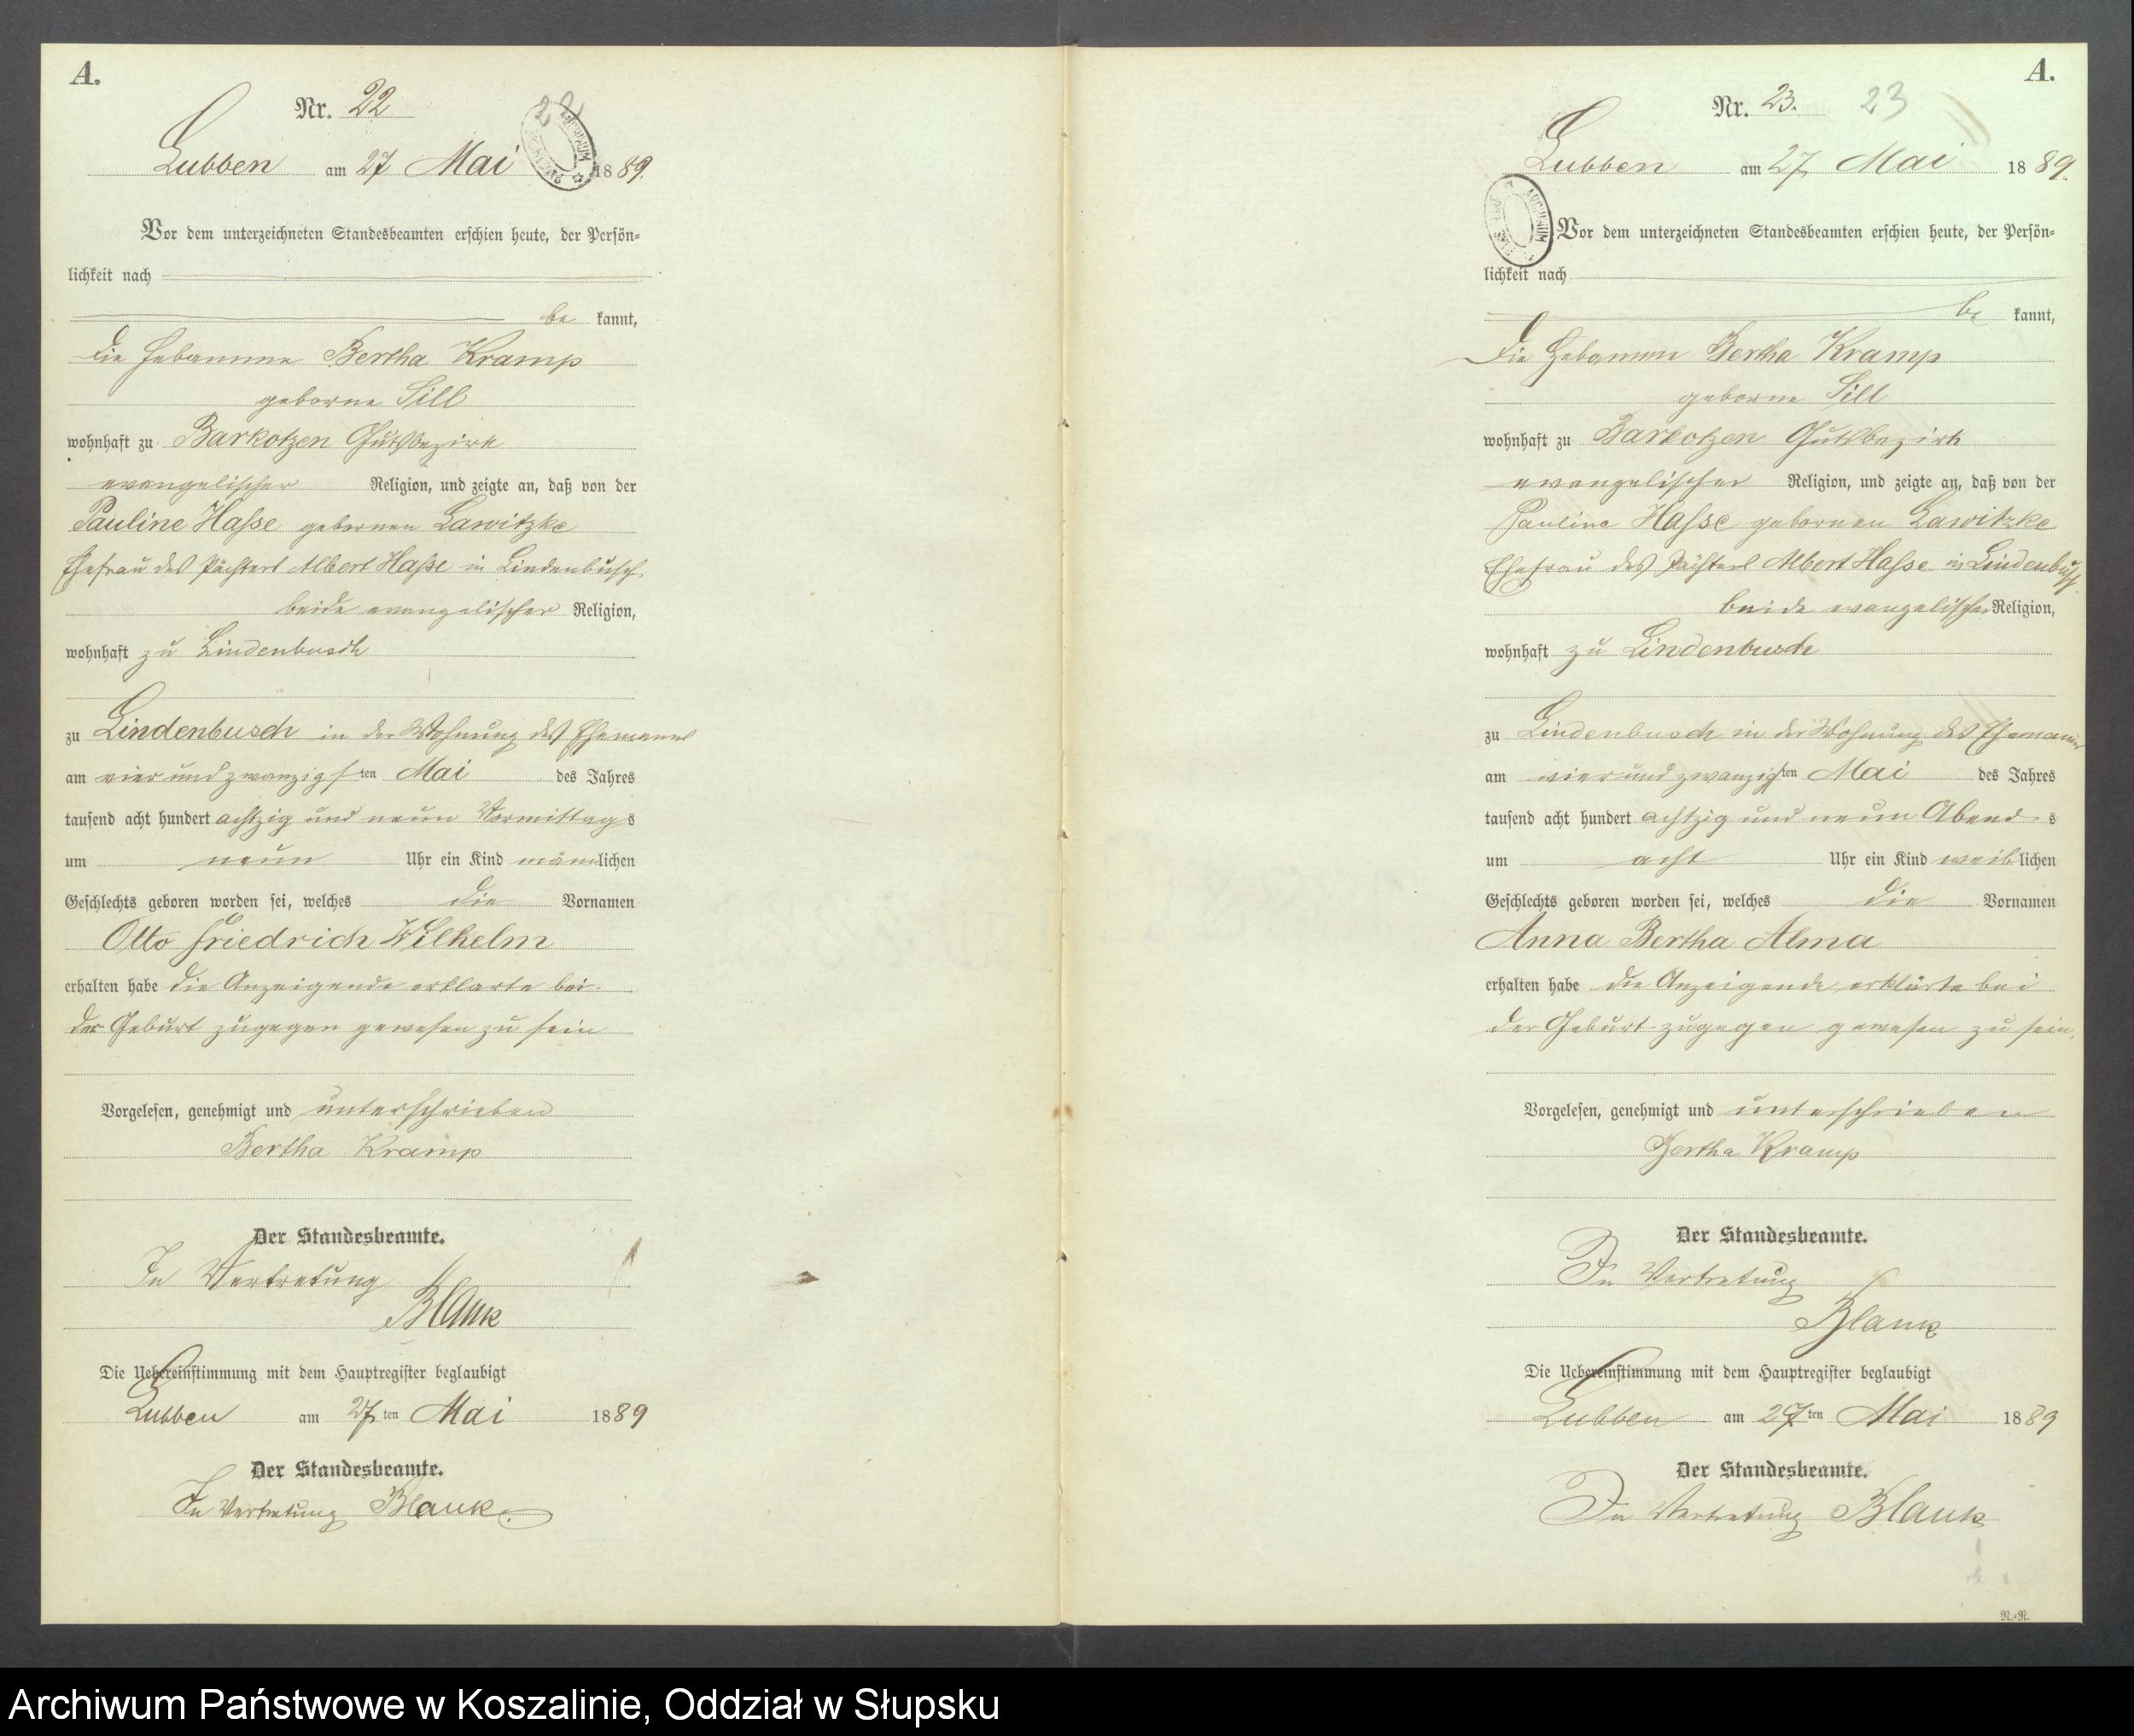 A.
Nr. 22
22
Lubben am 27 Mai 1889.
Vor dem unterzeichneten Standesbeamten erschien heute, der Persön=
lichkeit nach
be kannt,
die Hebamme Bertha Kramp
geborne Sill
wohnhaft zu Barkotzen Gutsbezirk
evangelischer Religion, und zeigte an, daß von der
Pauline Hasse gebornen Lawitzke
Ehefrau des Pächters Albert Hasse in Lindenbusch
beide evangelischer Religion,
wohnhaft zu Lindenbusch
zu Lindenbusch in der Wohnung des Ehemanns
am vier und zwanzigsten Mai des Jahres
tausend acht hundert achtzig und neun Vormittags
um neun Uhr ein Kind männlichen
Geschlechts geboren worden sei, welches die Vornamen
Otto Friedrich Wilhelm
erhalten habe die Anzeigende erklarte bei
der Geburt zugegen gewesen zu sein
Vorgelesen, genehmigt und unterschrieben
Bertha Kramp
Der Standesbeamte.
In Vertretung
Blank
Die Uebereinstimmung mit dem Hauptregister beglaubigt
Lubben am 27ten Mai 1889
Der Standesbeamte.
In Vertretung Blank.
A.
Nr. 23. 23
Lubben am 27. Mai 1889.
ARCHIWUM
Vor dem unterzeichneten Standesbeamten erschien heute, der Persön=
lichkeit nach
be kannt,
die Hebamme Bertha Kramp
geborne Sill
wohnhaft zu Barkotzen Gutsbezirk
evangelischer Religion, und zeigte an, daß von der
Pauline Hasse gebornen Lawitzke
Ehefrau des Pächters Albert Hasse in Lindenbusch
beide evangelischer Religion,
wohnhaft zu Lindenbusch
zu Lindenbusch in der Wohnung des Ehemanns
am vier und zwanzigsten Mai des Jahres
tausend acht hundert achtzig und neun Abends
um acht Uhr ein Kind weiblichen
Geschlechts geboren worden sei, welches die Vornamen
Anna Bertha Alma
erhalten habe die Anzeigende erklärte bei
der Geburt zugegen gewesen zu sein.
Vorgelesen, genehmigt und unterschrieben
Bertha Kramp
Der Standesbeamte.
In Vertretung
Blank
Die Uebereinstimmung mit dem Hauptregister beglaubigt
Lubben am 27ten Mai 1889
Der Standesbeamte.
In Vertretung Blank
N.-R.
Archiwum Państwowe w Koszalinie, Oddział w Słupsku